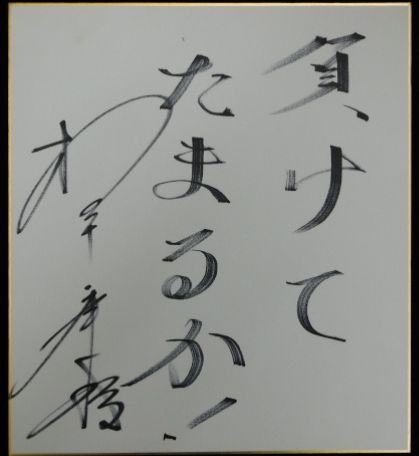 負けて
たまるか!